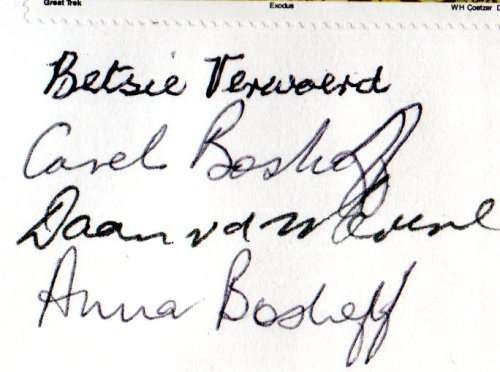 Great Trek Exodus WH Coetzer D
Betsie Verwoerd
Carel Boshoff
Daan vd Merwe
Anna Boshoff